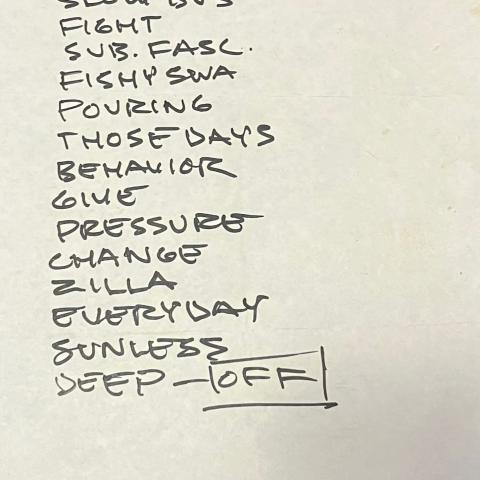 SLOW BUS
FIGHT
SUB. FASC.
FISHY SWA
POURING
THOSE DAYS
BEHAVIOR
GIVE
PRESSURE
CHANGE
ZILLA
EVERYDAY
SUNLESS
DEEP - OFF